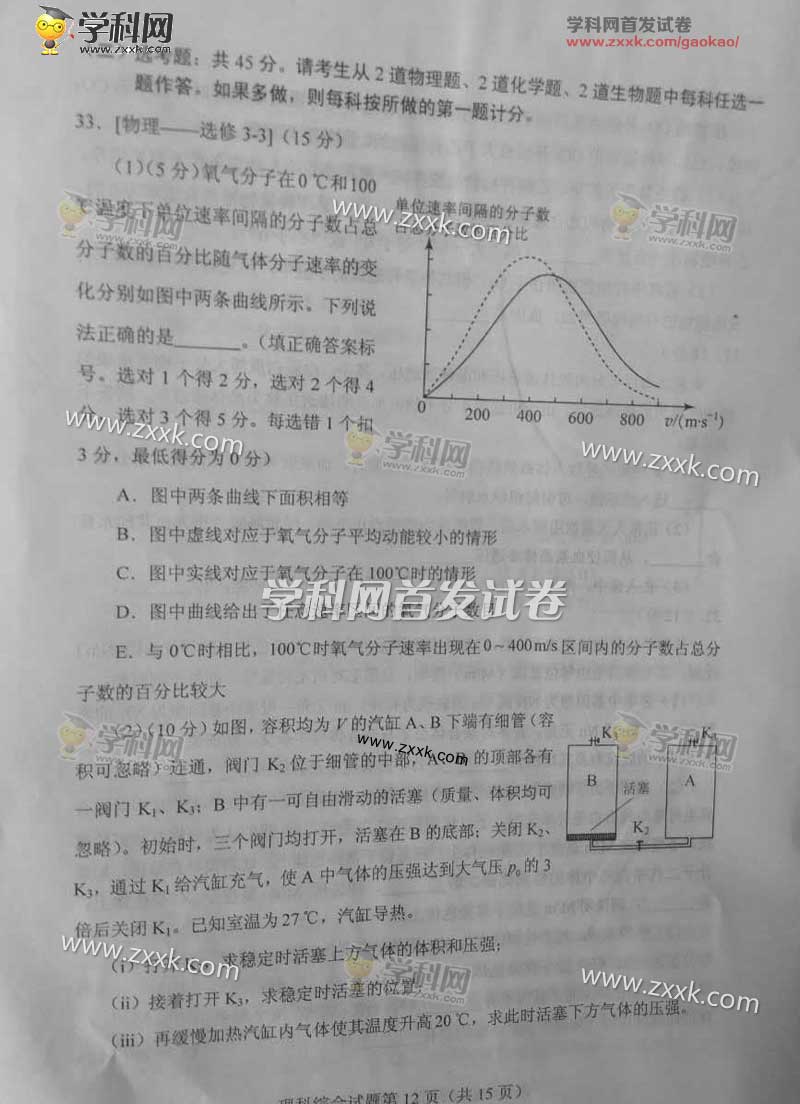 学科网
www.zxxk.com
学科网首发试卷
www.zxxk.com/gaokao/
选考题：共 45 分。请考生从 2 道物理题、2 道化学题、2 道生物题中每科任选一
题作答。如果多做，则每科按所做的第一题计分。
33．[物理——选修 3-3]（15 分）
（1）（5 分）氧气分子在 0 ℃和 100
℃温度下单位速率间隔的分子数占总
分子数的百分比随气体分子速率的变
化分别如图中两条曲线所示。下列说
法正确的是________。（填正确答案标
号。选对 1 个得 2 分，选对 2 个得 4
分，选对 3 个得 5 分。每选错 1 个扣
3 分，最低得分为 0 分）
单位速率间隔的分子数
比
0 200 400 600 800 v/(m·s⁻¹)
A．图中两条曲线下面积相等
B．图中虚线对应于氧气分子平均动能较小的情形
C．图中实线对应于氧气分子在 100℃时的情形
D．图中曲线给出了任意
E．与 0℃时相比，100℃时氧气分子速率出现在 0～400m/s 区间内的分子数占总分
子数的百分比较大
（2）（10 分）如图，容积均为 V 的汽缸 A、B 下端有细管（容
积可忽略）连通，阀门 K₂ 位于细管的中部，A、B 的顶部各有
一阀门 K₁、K₃；B 中有一可自由滑动的活塞（质量、体积均可
忽略）。初始时，三个阀门均打开，活塞在 B 的底部；关闭 K₂、
K₃，通过 K₁ 给汽缸充气，使 A 中气体的压强达到大气压 p₀ 的 3
倍后关闭 K₁。已知室温为 27 ℃，汽缸导热。
K₁
B
活塞
A
K₂
（i）打开，求稳定时活塞上方气体的体积和压强；
（ii）接着打开 K₃，求稳定时活塞的位置
（iii）再缓慢加热汽缸内气体使其温度升高 20 ℃，求此时活塞下方气体的压强。
理科综合试题第 12 页（共 15 页）
学科网
www.zxxk.com
学科网首发试卷